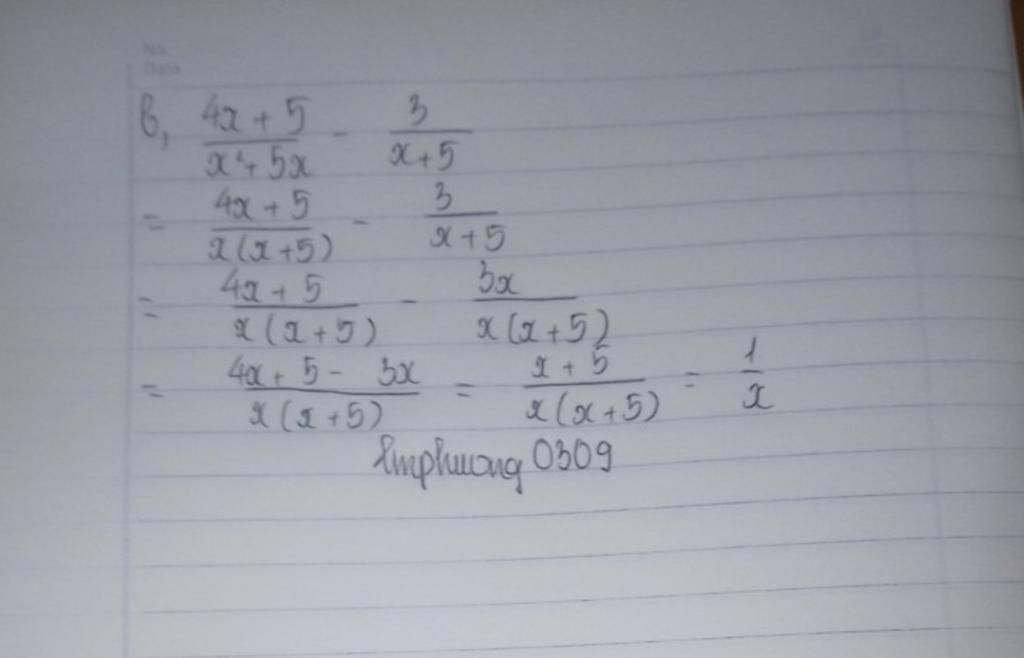 No.
Date
b, \frac{4x + 5}{x^2 + 5x} - \frac{3}{x + 5}
= \frac{4x + 5}{x(x + 5)} - \frac{3}{x + 5}
= \frac{4x + 5}{x(x + 5)} - \frac{3x}{x(x + 5)}
= \frac{4x + 5 - 3x}{x(x + 5)} = \frac{x + 5}{x(x + 5)} = \frac{1}{x}
0309